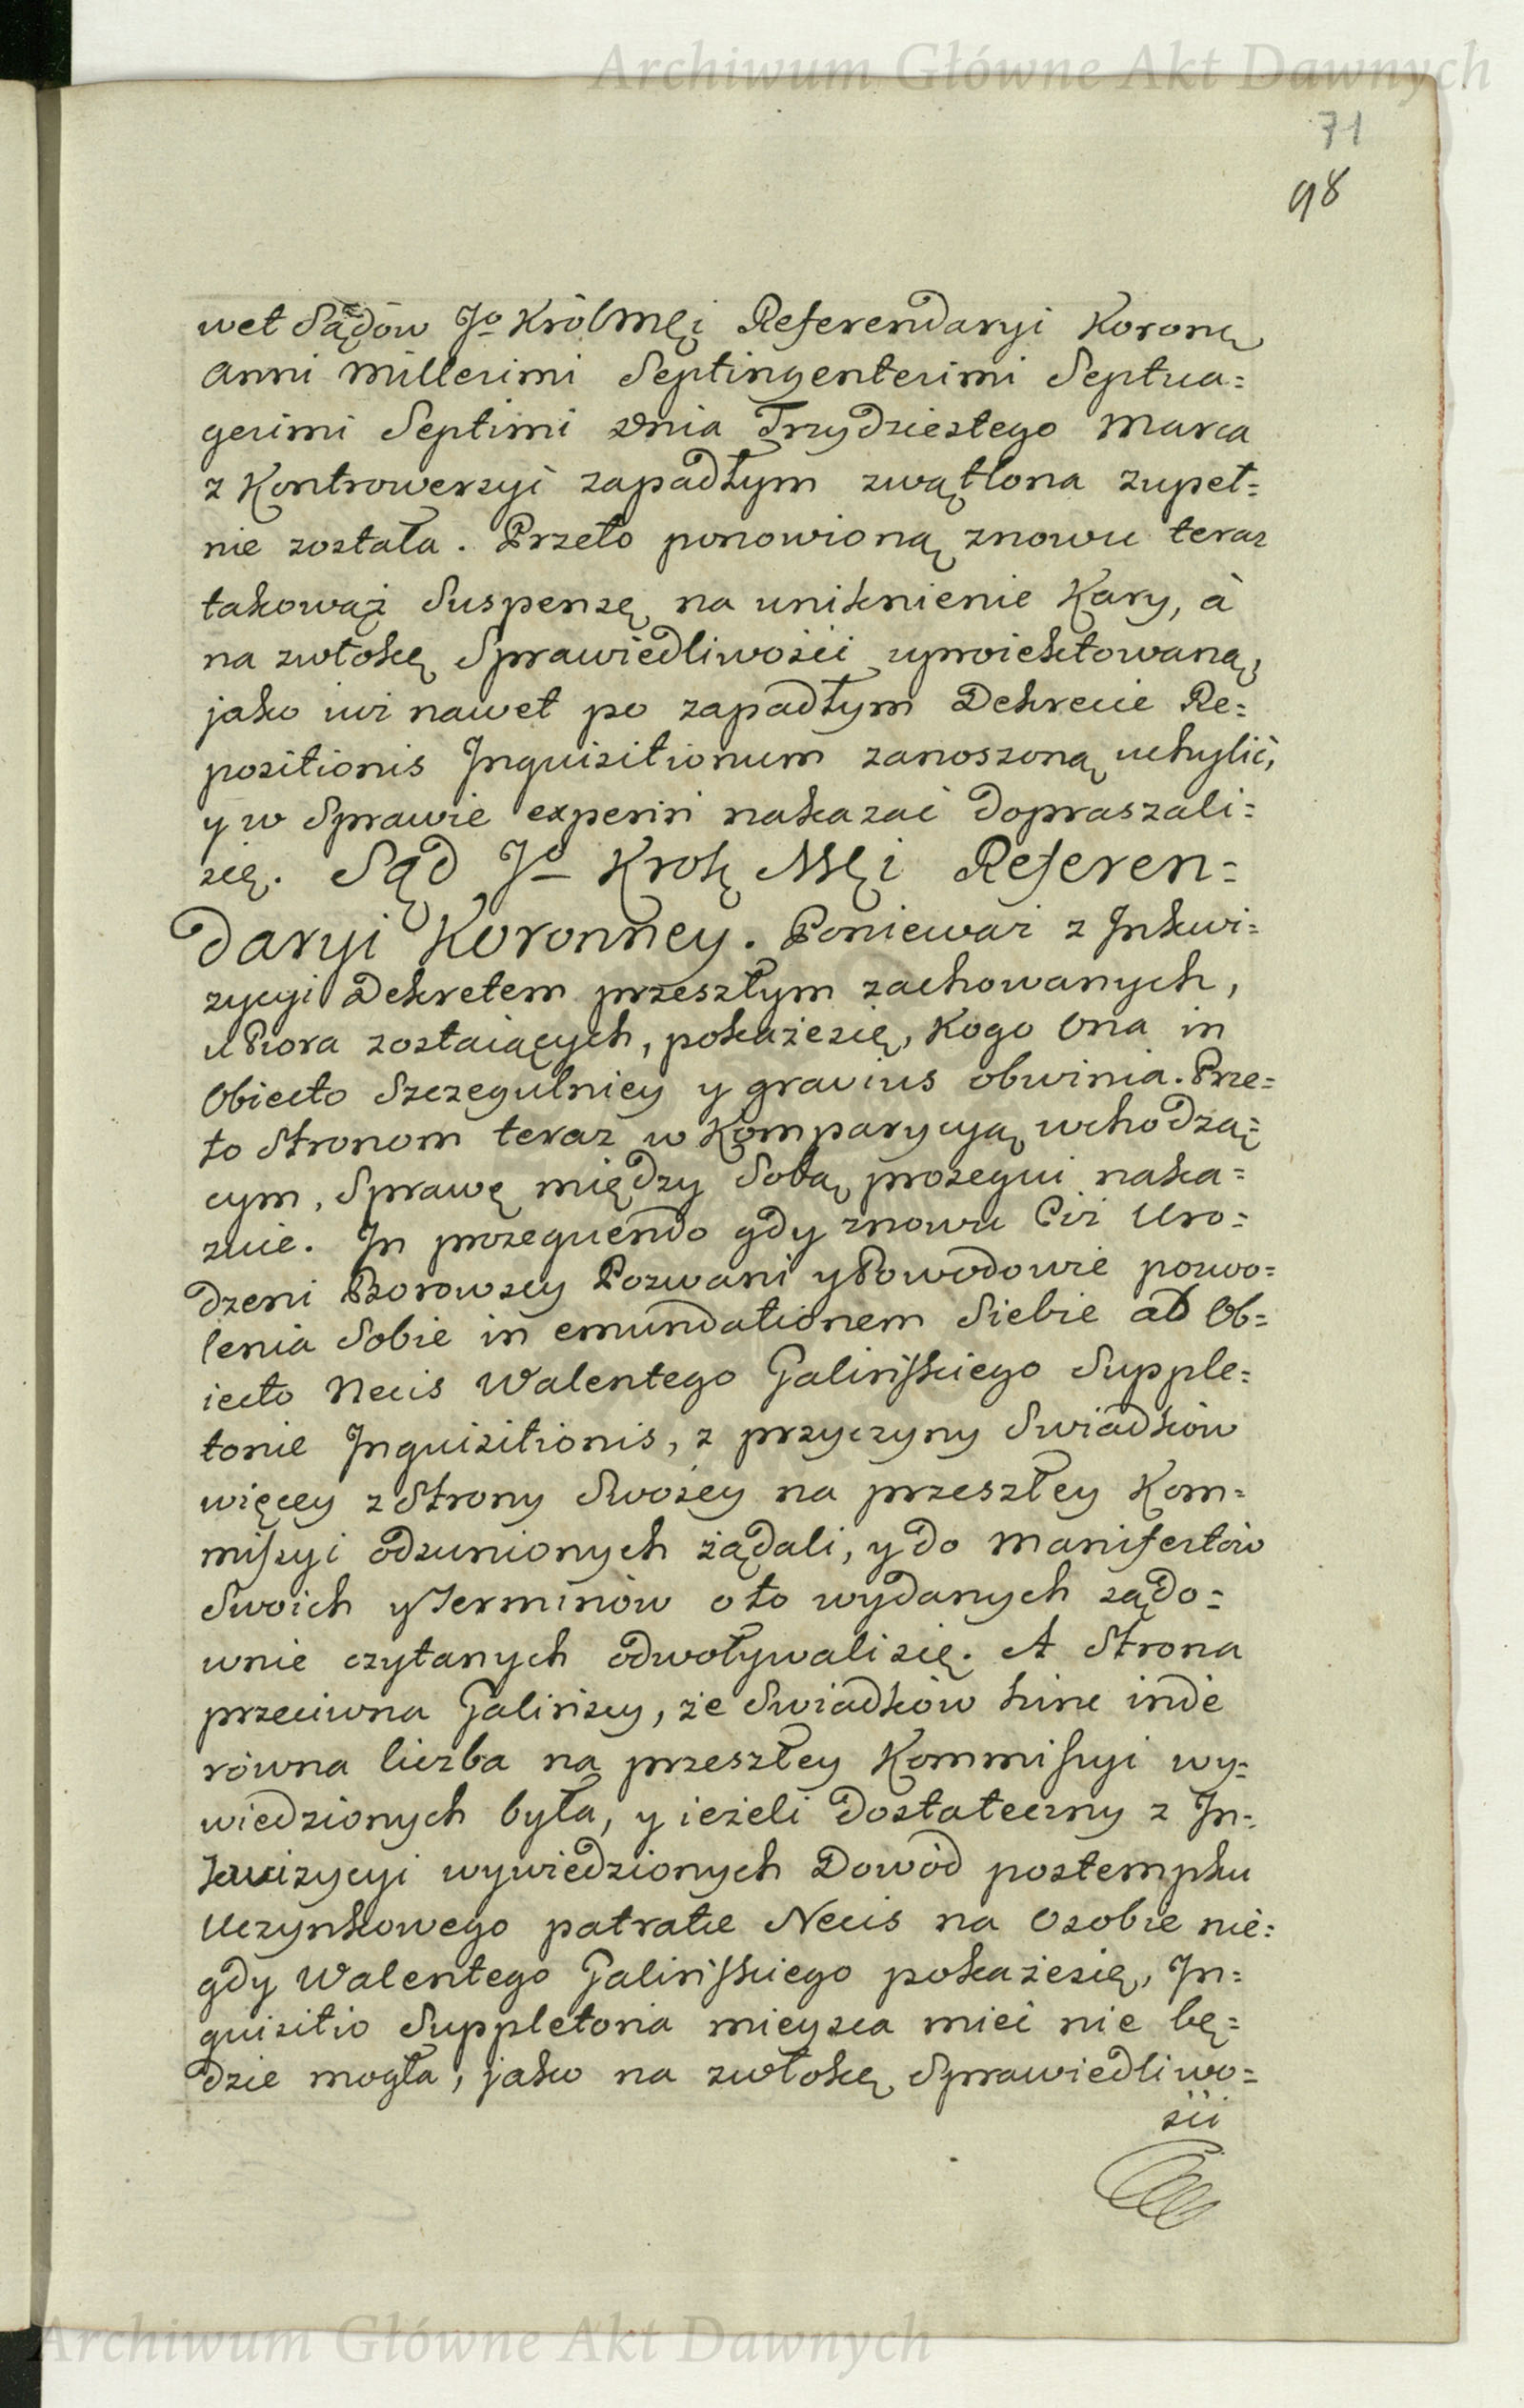 Archiwum Główne Akt Dawnych
71
98
wet Sądów Jo KrólMęi Referendaryi Koronę
Anni Millesimi Septingentesimi Septua=
gesimi Septimi Dnia Trzydziestego Marca
z Kontrowersyi zapadłym zwątlona zupeł=
nie została. Przeto ponowioną znowu teraz
takowąż Suspensę na uniknienie Kary, à
na zwłokę Sprawiedliwości uproiektowaną,
jako iuż nawet po zapadłym Dekrecie Re=
positionis Inquisitionum zanoszoną uchylić,
y w Sprawie experiri nakazać dopraszali=
się. Sąd Jo Krolę Męi Referen=
daryi Koronney. Ponieważ z Inkwi=
zycyi Dekretem przeszłym zachowanych,
u Pióra zostaiących, pokażesię, Kogo Ona in
Obiecto Szczegulniey y gravius obwinia. Prze=
to Stronom teraz w Komparycyą wchodzą=
cym, Sprawę między Sobą prosequi naka=
zuie. In prosequendo gdy znowu Ciż Uro=
dzeni Borowscy Pozwani y Powodowie pozwo=
lenia Sobie in emundationem Siebie ab Ob=
iecto Necis Walentego Galińskiego Supple=
torie Inquisitionis, z przyczyny Swiadków
więcey z Strony Swoiey na przeszłey Kom=
missyi odsunionych żądali, y do Manifestów
Swoich y Terminów o to wydanych sądo=
wnie czytanych odwoływali się. A Strona
przeciwna Galińscy, że Swiadków hinc inde
równa liczba na przeszłey Kommissyi wy=
wiedzionych była, y ieżeli dostateczny z In=
kwizycyi wywiedzionych Dowód postempku
Uczynkowego patratæ Necis na Osobie nie=
gdy Walentego Galińskiego pokażesię, In=
quisitio Suppletoria mieysca mieć nie bę=
dzie mogła, jako na zwłokę Sprawiedliwo=
ści
Archiwum Główne Akt Dawnych